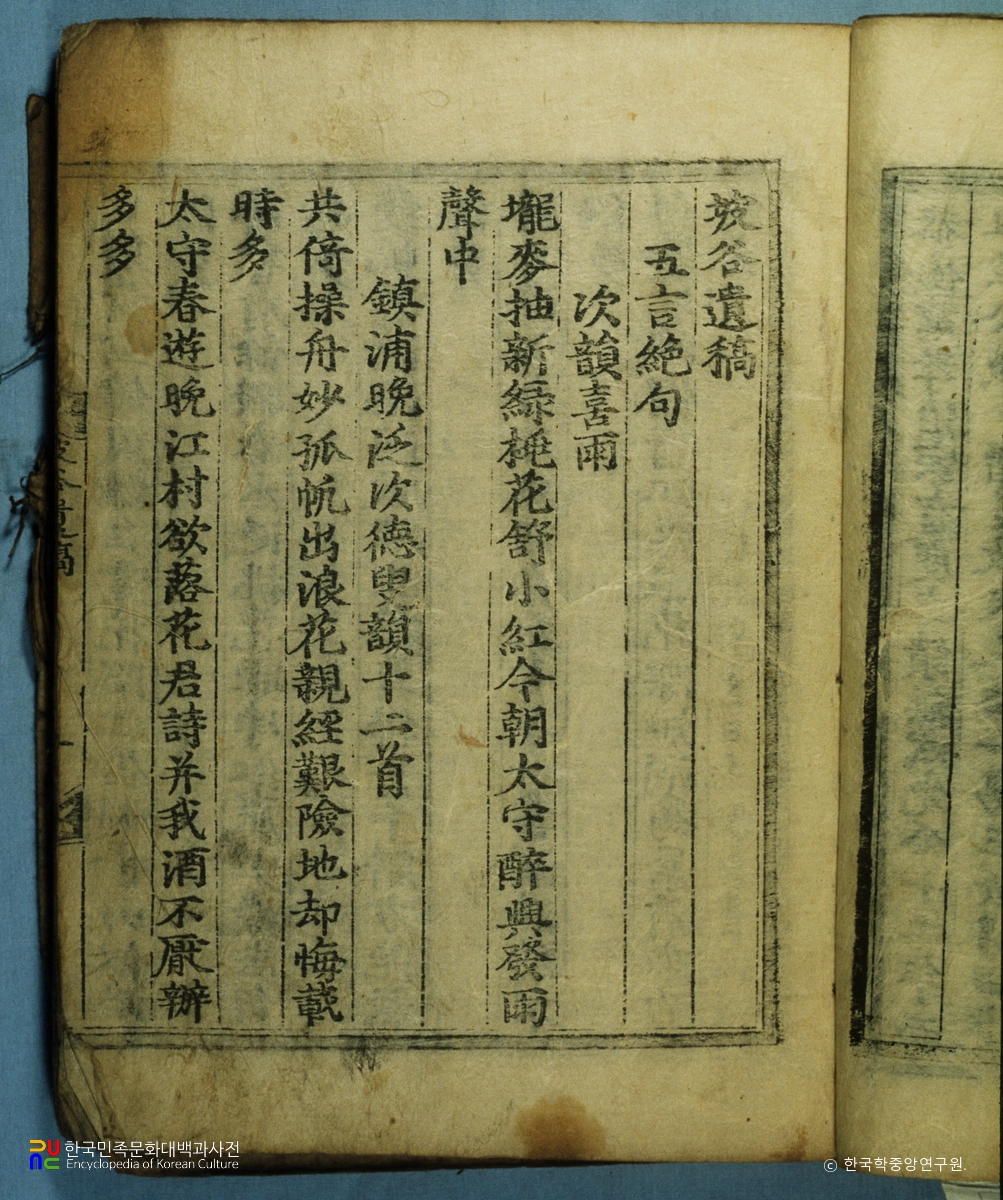 坡谷遺稿
五言絶句
次韻喜雨
壠麥抽新綠桃花舒小紅今朝太守醉興發雨
聲中
鎮浦晩泛次德叟韻十二首
共倚操舟妙孤帆出浪花親經艱險地却悔載
時多
太守春遊晩江村欲落花君詩并我酒不厭辦
多多
坡谷遺稿
一
한국민족문화대백과사전
Encyclopedia of Korean Culture
© 한국학중앙연구원.